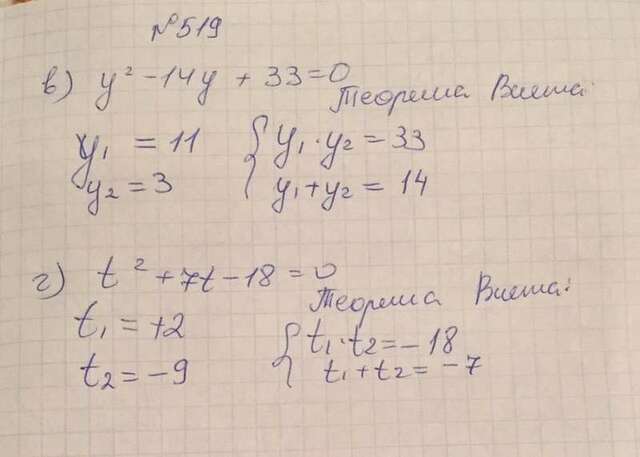 №519
в) y² - 14y + 33 = 0
Теорема Виета:
y₁ = 11
y₂ = 3
{ y₁ · y₂ = 33
y₁ + y₂ = 14
г) t² + 7t - 18 = 0
Теорема Виета:
t₁ = +2
t₂ = -9
{ t₁ · t₂ = -18
t₁ + t₂ = -7